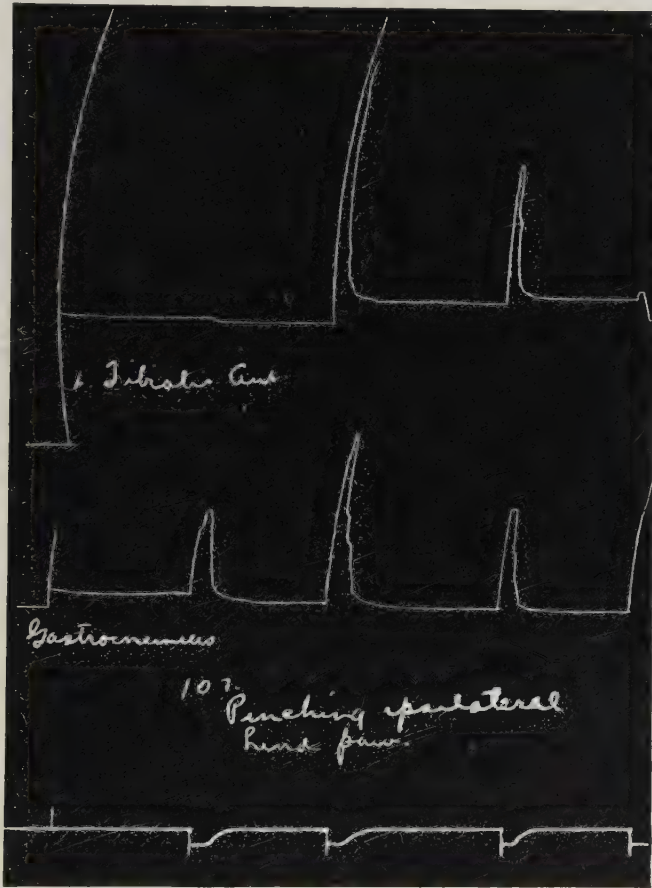 Tibialis Ant
Gastrocnemius
107.
Pinching ipsilateral
hind paw.